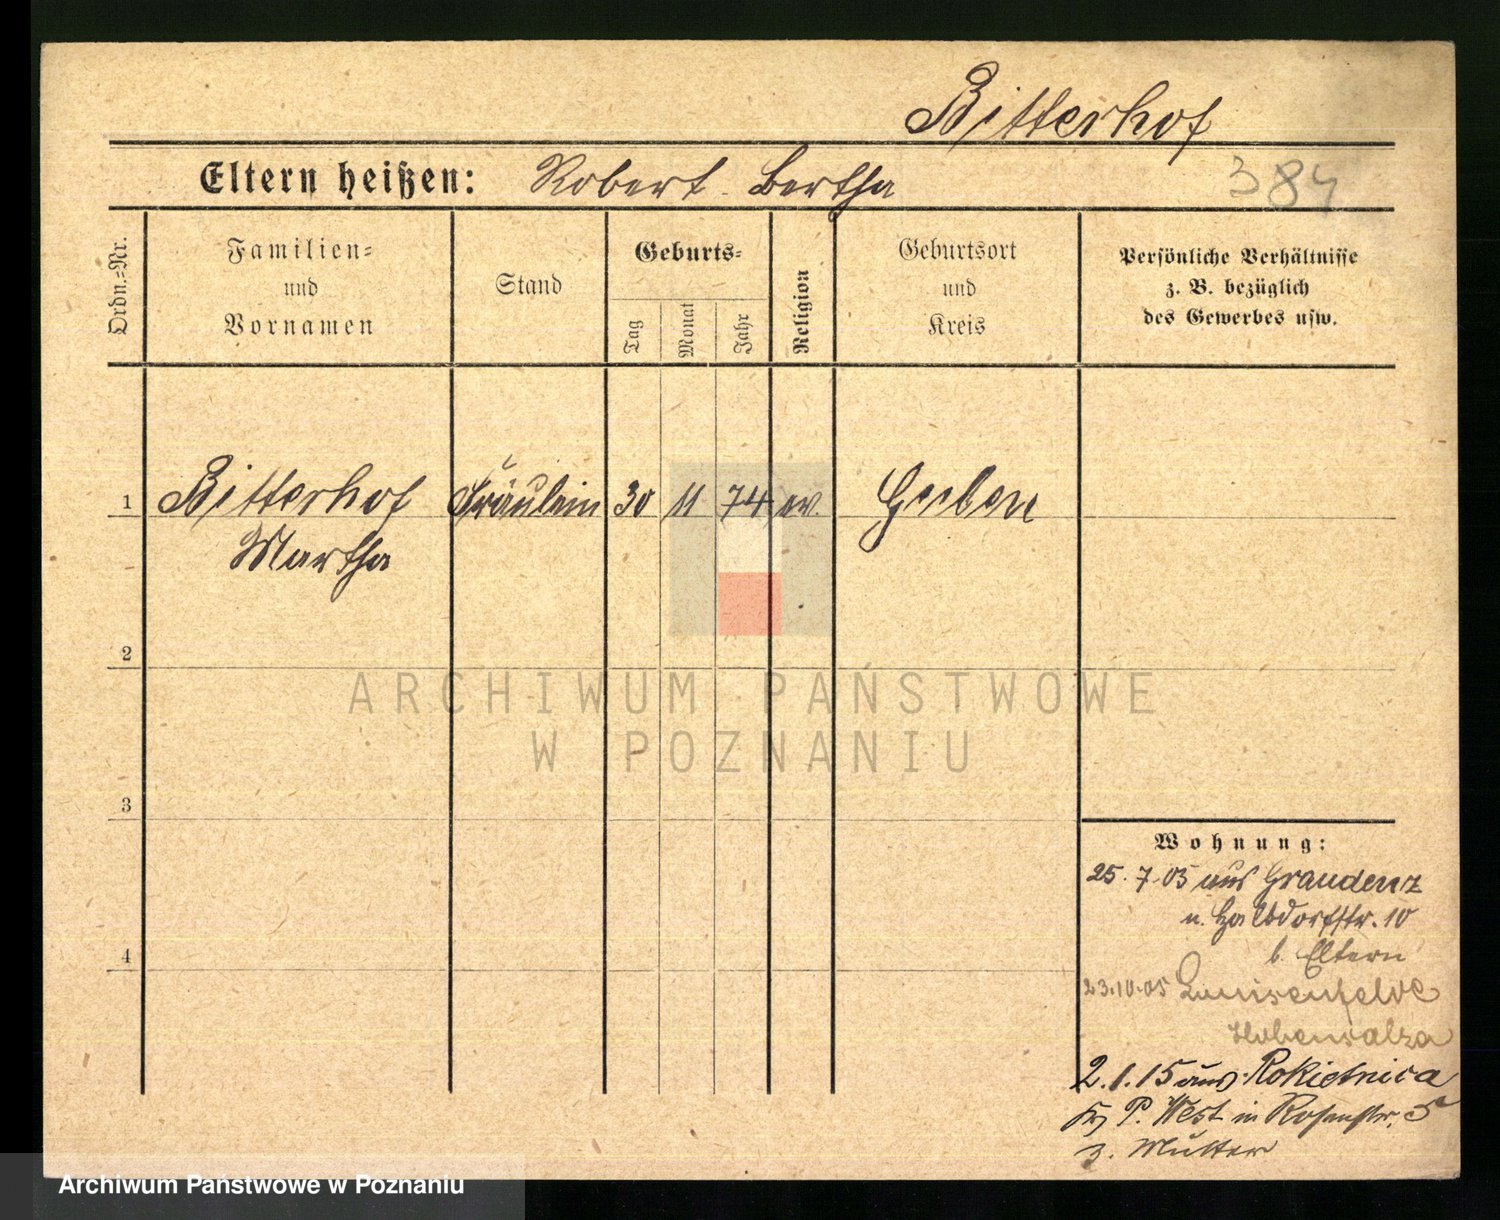 Bitterhof
Eltern heißen: Robert Bertha
384
Ordn.=Nr.
Familien=
und
Vornamen
Stand
Geburts=
Tag
Monat
Jahr
Religion
Geburtsort
und
Kreis
Persönliche Verhältnisse
z. B. bezüglich
des Gewerbes usw.
1 Bitterhof Fräulein 30 11 74 ev. Guben
Martha
2
3
4
Wohnung:
25.7.05 aus Graudenz
n. Halbdorfstr. 10
b. Eltern
23.10.05 Luisenfelde
Hohensalza
2.1.15 aus Rokietnica
Kr P. West in Rosenstr. 5
z. Mutter
ARCHIWUM PAŃSTWOWE
W POZNANIU
Archiwum Państwowe w Poznaniu